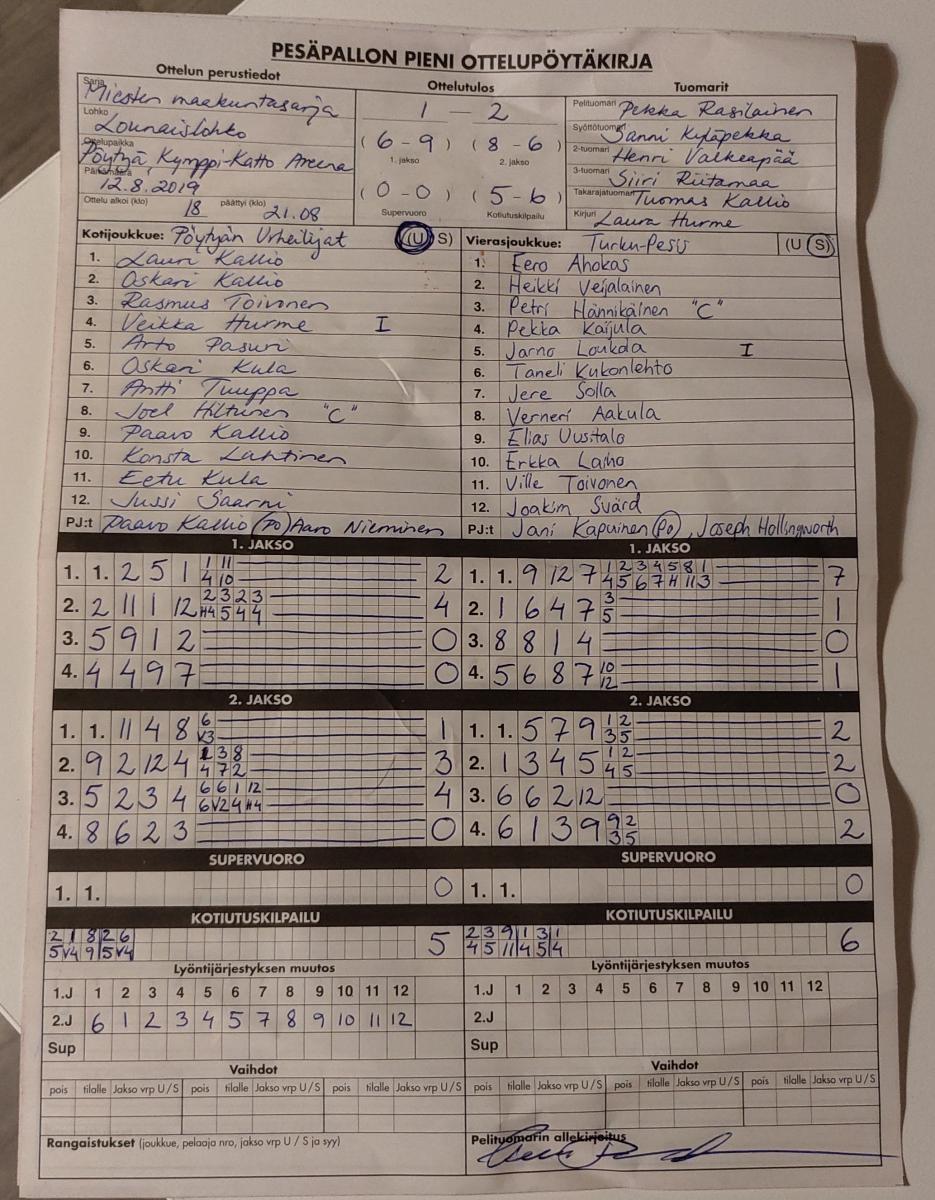 PESÄPALLON PIENI OTTELUPÖYTÄKIRJA
Ottelun perustiedot Ottelutulos Tuomarit
Sarja Miesten maakuntasarja 1 - 2 Pelituomari Pekka Rasilainen
Lohko Lounaislohko Syöttötuomari Sanni Kyläpekka
Ottelupaikka Pöytyä Kymppi-Katto Areena (6 - 9) (8 - 6) 2-tuomari Henri Valkeapää
1. jakso 2. jakso
Päivämäärä 12.8.2019 3-tuomari Siiri Riitamaa
(0 - 0) (5 - 6) Takarajatuomari Tuomas Kallio
Ottelu alkoi (klo) 18 päättyi (klo) 21.08 Supervuoro Kotiutuskilpailu Kirjuri Laura Hurme
Kotijoukkue: Pöytyän Urheilijat (U S) Vierasjoukkue: Turku-Pesis (U S)
1. Lauri Kallio 1. Eero Ahokas
2. Oskari Kallio 2. Heikki Veijalainen
3. Rasmus Toivonen 3. Petri Hännikäinen "C"
4. Veikka Hurme I 4. Pekka Kaijula
5. Arto Pasuri 5. Jarno Loukola I
6. Oskari Kula 6. Taneli Kukonlehto
7. Antti Tuuppa 7. Jere Solla
8. Joel Hiltunen "C" 8. Verneri Aakula
9. Paavo Kallio 9. Elias Uusitalo
10. Konsta Lahtinen 10. Erkka Laiho
11. Eetu Kula 11. Ville Toivonen
12. Jussi Saarni 12. Joakim Svärd
PJ:t Paavo Kallio (PO) Aaro Nieminen PJ:t Jani Kapuinen (PO), Joseph Hollingworth
1. JAKSO 1. JAKSO
1. 1. 2 5 1 1 11 2 1. 1. 9 12 7 1 2 3 4 5 8 1 7
4 10 4 5 6 7 H 11 3
2. 2 11 1 12 2 3 2 3 4 2. 1 6 4 7 3 1
H4 5 4 4 5
3. 5 9 1 2 0 3. 8 8 1 4 0
4. 4 4 9 7 0 4. 5 6 8 7 10 1
12
2. JAKSO 2. JAKSO
1. 1. 11 4 8 6 1 1. 1. 5 7 9 1 2 2
V3 3 5
2. 9 2 12 4 1 3 8 3 2. 1 3 4 5 1 2 2
4 7 2 4 5
3. 5 2 3 4 6 6 1 12 4 3. 6 6 2 12 0
6 V2 4 H4
4. 8 6 2 3 0 4. 6 1 3 9 9 2 2
3 5
SUPERVUORO SUPERVUORO
1. 1. 0 1. 1. 0
KOTIUTUSKILPAILU KOTIUTUSKILPAILU
2 1 8 2 6 5 2 3 9 1 3 1 6
5 V4 9 5 V4 4 5 11 4 5 4
Lyöntijärjestyksen muutos Lyöntijärjestyksen muutos
1.J 1 2 3 4 5 6 7 8 9 10 11 12 1.J 1 2 3 4 5 6 7 8 9 10 11 12
2.J 6 1 2 3 4 5 7 8 9 10 11 12 2.J
Sup Sup
Vaihdot Vaihdot
pois tilalle Jakso vrp U / S pois tilalle Jakso vrp U / S pois tilalle Jakso vrp U / S pois tilalle Jakso vrp U / S pois tilalle Jakso vrp U / S pois tilalle Jakso vrp U / S
Rangaistukset (joukkue, pelaaja nro, jakso vrp U / S ja syy) Pelituomarin allekirjoitus